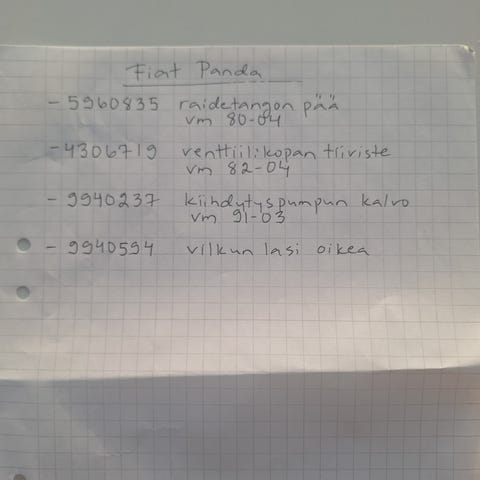 Fiat Panda
- 5960835 raidetangon pää
vm 80-04
- 4306719 venttiilikopan tiiviste
vm 82-04
- 9940237 kiihdytyspumpun kalvo
vm 91-03
- 9940594 vilkun lasi oikea